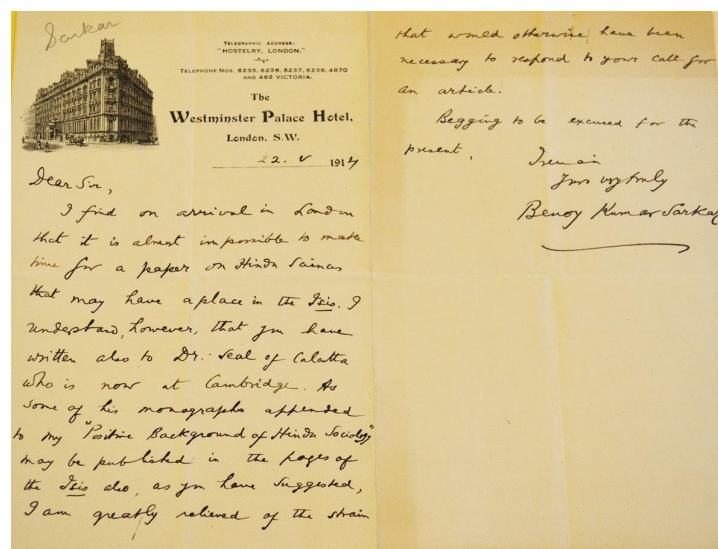 Sarkar
TELEGRAPHIC ADDRESS:
"HOSTELRY, LONDON."
TELEPHONE NOS. 6235, 6236, 6237, 6238, 4870
AND 482 VICTORIA.
The
Westminster Palace Hotel,
London. S.W.
22. V 1914
Dear Sir,
I find on arrival in London
that it is almost impossible to make
time for a paper on Hindu Sciences
that may have a place in the Isis. I
understand, however, that you have
written also to Dr. Seal of Calcutta
who is now at Cambridge. As
some of his monographs appended
to my "Positive Background of Hindu Sociology"
may be published in the pages of
the Isis also, as you have suggested,
I am greatly relieved of the strain
that would otherwise have been
necessary to respond to your call for
an article.
Begging to be excused for the
present,
I remain
Yours very truly
Benoy Kumar Sarkar